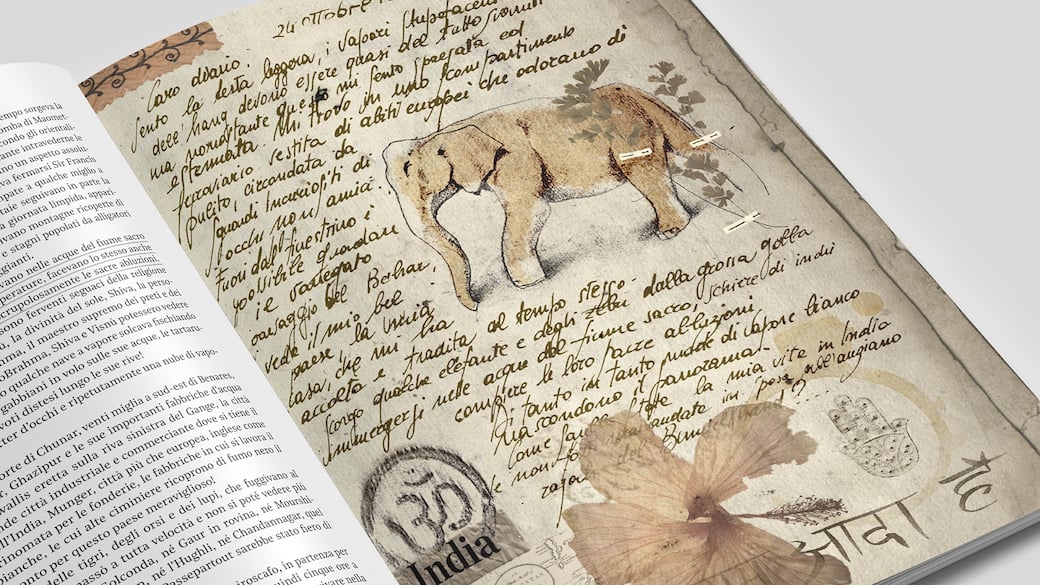 empo sorgeva la
omba di Maomet-
condo gli orientali.
ante intravederne le
no un aspetto assolu-
va fermarsi Sir Francis
mpate a qualche miglio a
taie seguivano in parte la
a giornata limpida, appari-
vano montagne ricoperte di
e stagni popolati da alligatori
ggianti.
vano nelle acque del fiume sacro
perature, facevano lo stesso anche
crupolosamente le sacre abluzioni.
sono ferventi seguaci della religione
, la divinità del sole, Shiva, la perso-
ma, il maestro supremo dei preti e dei
Brahma, Shiva e Visnù potessero vedere
o qualche nave a vapore solcava fischiando
gabbiani in volo sulle sue acque, le tartaru-
voti distesi lungo le sue rive!
ter d'occhi e ripetutamente una nube di vapo-
orte di Chunar, venti miglia a sud-est di Benares,
, Ghazipur e le sue importanti fabbriche d'acqua
wallis eretta sulla riva sinistra del Gange, la città
nde città industriale e commerciante dove si tiene il
ll'India. Munger, città più che europea, inglese come
inomata per le fonderie, le fabbriche in cui si lavora il
bianche, le cui alte ciminiere ricoprono di fumo nero il
onto per questo paese meraviglioso.
delle tigri, degli orsi e dei lupi, che fuggivano al
passò a tutta velocità e non si poté vedere più
Golconda, né Gaur in rovina, né Mourshi-
né l'Hughli, né Chandannagar, quel
Passepartout sarebbe stato fiero di
iroscafo, in partenza per
quindi cinque ore a
24 ottobre
Caro diario.
Sento la testa leggera, i vapori stupefacenti
dell'hang devono essere quasi del tutto svaniti
ma nonostante questo mi sento spaesata ed
esterrefatta. Mi trovo in uno scompartimento
ferroviario vestita di abiti europei che odorano di
pulito, circondata da
sguardi incuriositi di
occhi non amici.
Fuori dal finestrino è
possibile guardare
il variegato
paesaggio del Behar,
vedo il mio bel
paese, la mia India,
casa, che mi ha
accolta e tradita al tempo stesso.
Scorgo qualche elefante e degli zebù dalla grossa gobba
immergersi nelle acque del fiume sacro, schiere di indù
compiere le loro pazze abluzioni.
Di tanto in tanto nubi di vapore bianco
nascondono il panorama.
la mia vita in India
ॐ
India
आदा